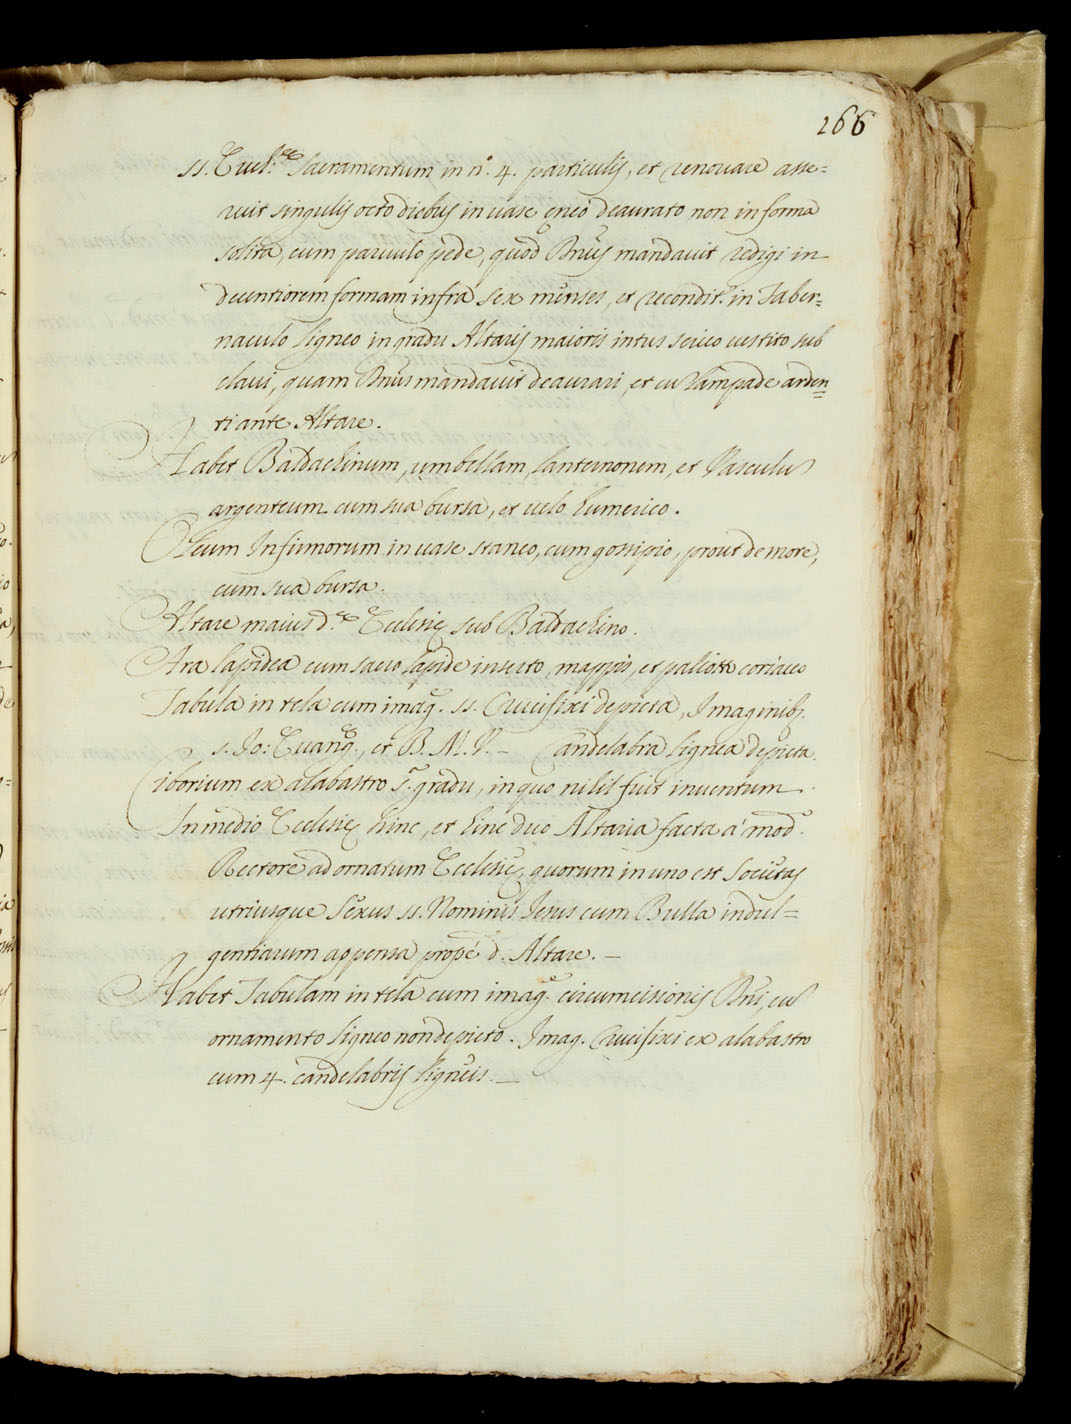 266
SS. Eucl.ę Sacramentum in n.º 4. particulis, et renovare asse=
ruit singulis octo diebus in vase ęneo deaurato non in forma
solita, cum parvulo pede, quod Dnus mandavit redigi in
decentiorem formam infra sex menses, et recondit. in Taber=
naculo ligneo in gradu Altaris maioris intus serico vestito sub
clavi, quam Dnus mandavit deaurari, et cu lampade arden=
ti ante Altare.
Habet Baldachinum, umbellam, lanternonem, et Vasculu
argenteum cum sua bursa, et velo humerico.
Oleum Infirmorum in vase staneo, cum gossipio, prout de more,
cum sua bursa.
Altare maius d.ę Ecclesię sub Baldachino.
Ara lapidea cum sacro lapide inserto, mappis, et paliotto coriaceo
Tabula in tela cum imag. SS. Crucifixi depicta, Imaginib.
S. Jo: Evang., et B. M. V. - Candelabra lignea depicta.
Ciborium ex alabastro s.ª gradu, in quo nihil fuit inventum.
In medio Ecclesię hinc, et hinc duo Altaria facta à mod.
Rectore ad ornatum Ecclesię, quorum in uno est Societas
utriusque Sexus SS. Nominis Jesus cum Bulla indul=
gentiarum appensa propè d. Altare. -
Habet Tabulam in tela cum imag. circumcisionis Dni, cu
ornamento ligneo non depicto. Imag. Crucifixi ex alabastro
cum 4. candelabris ligneis. -